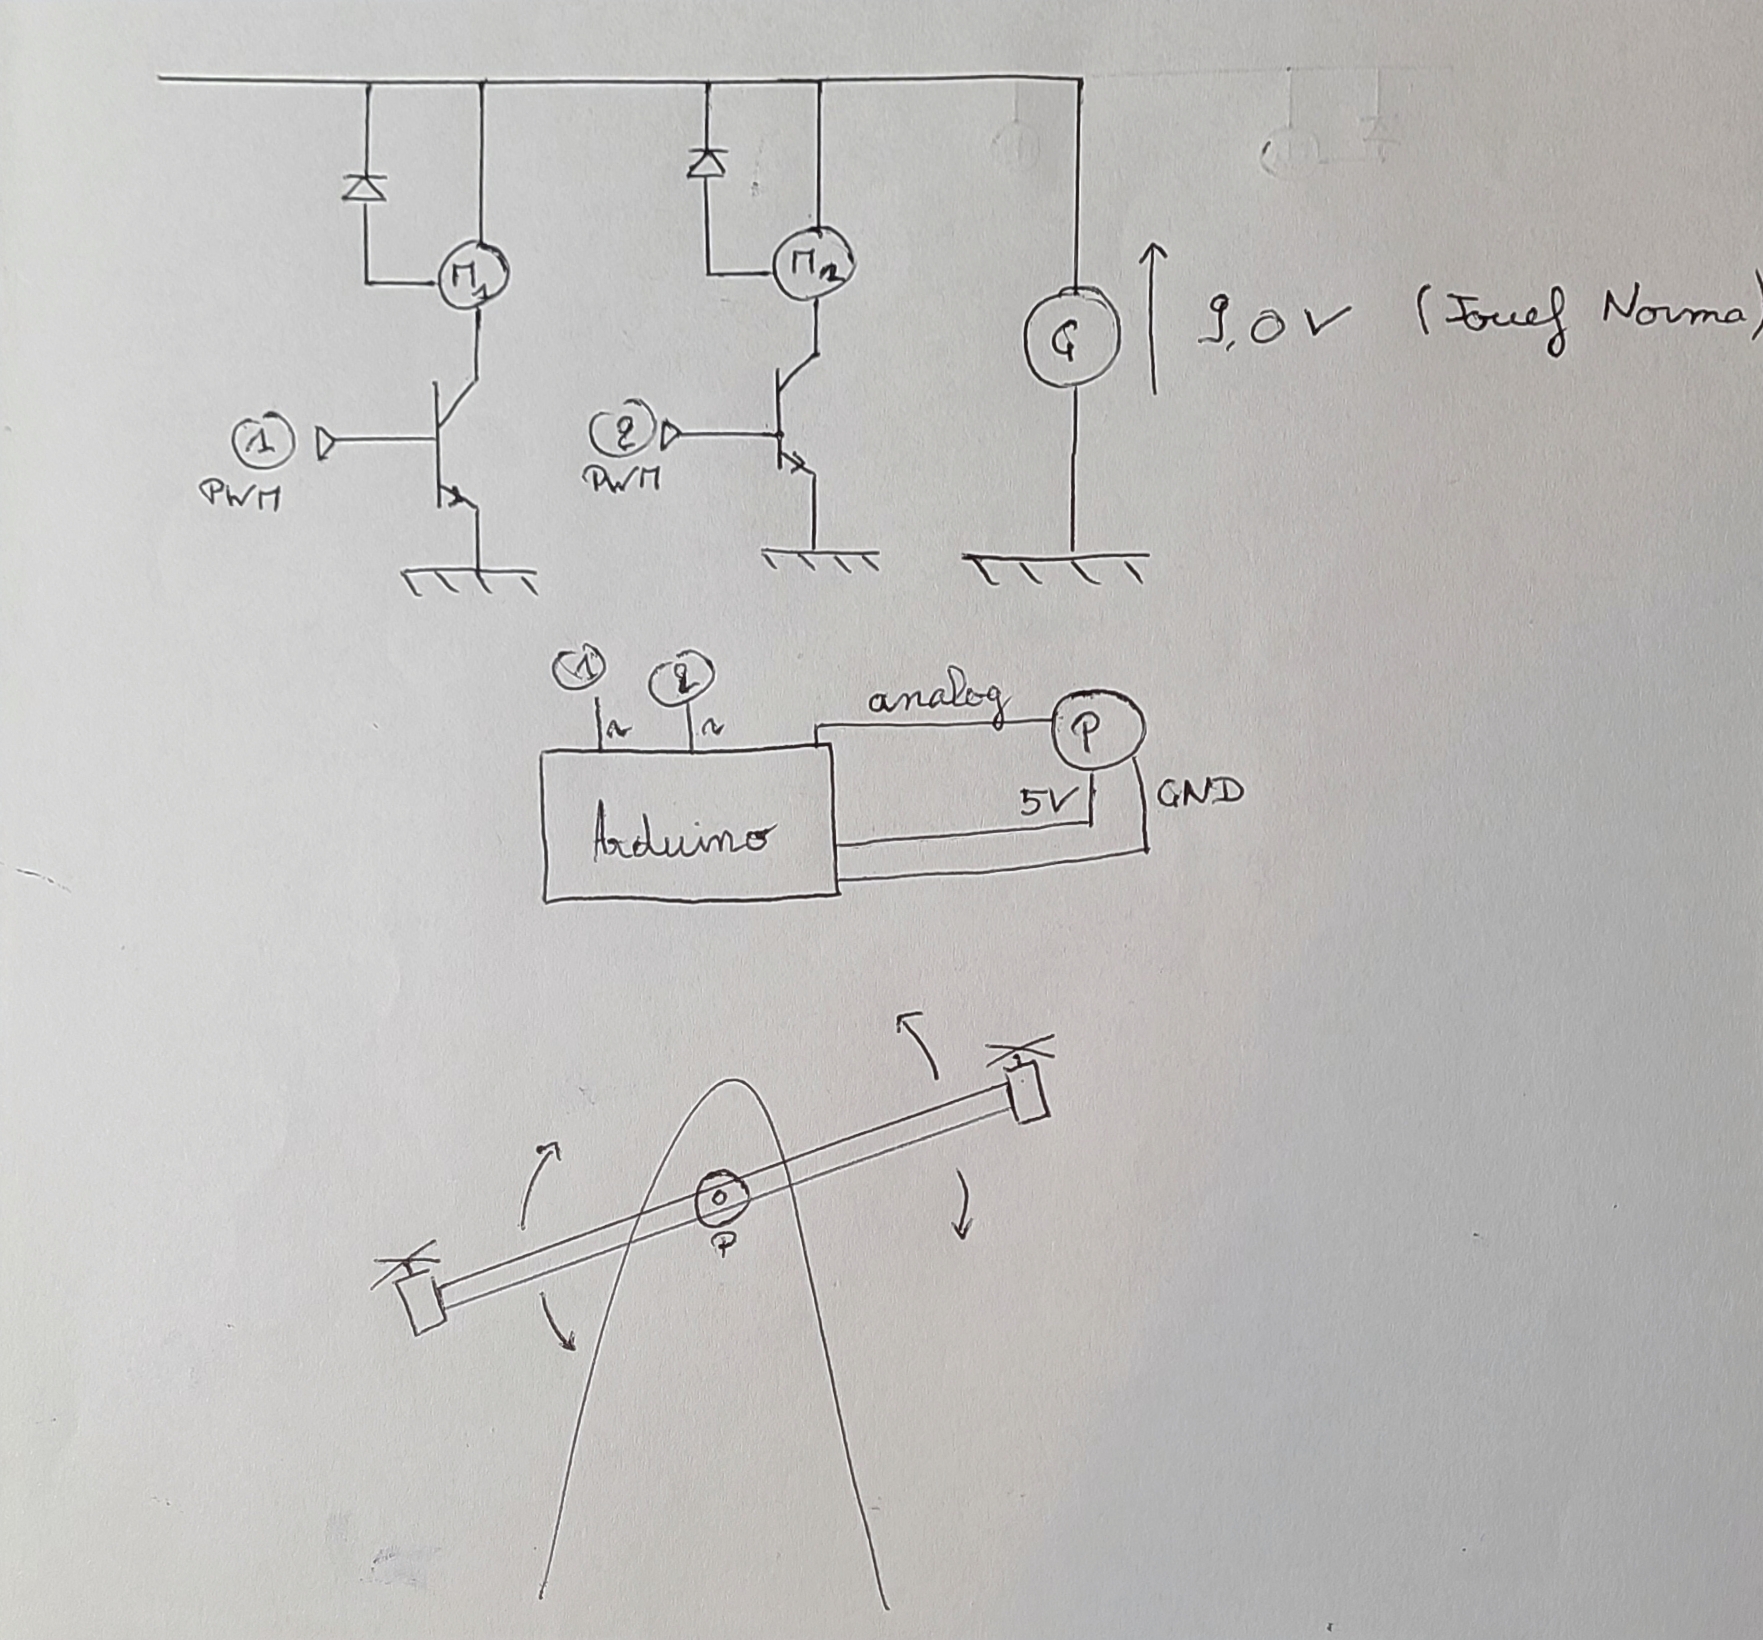 M1
M2
G
9,0V (Jouef Norma)
1
PWM
2
PWM
1
2
~
~
analog
P
5V
GND
Arduino
P